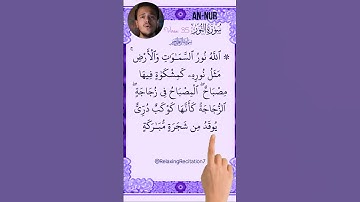 AN-NUR
سُورَةُ النُّورِ
Verse 35
۞ ٱللَّهُ نُورُ ٱلسَّمَـٰوَٰتِ وَٱلْأَرْضِ ۚ
مَثَلُ نُورِهِۦ كَمِشْكَوٰةٍ فِيهَا
مِصْبَاحٌ ۖ ٱلْمِصْبَاحُ فِى زُجَاجَةٍ ۖ
ٱلزُّجَاجَةُ كَأَنَّهَا كَوْكَبٌ دُرِّىٌّ
يُوقَدُ مِن شَجَرَةٍ مُّبَـٰرَكَةٍ
@RelaxingRecitation7